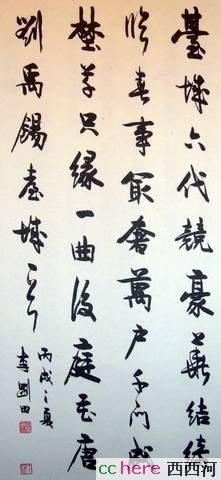 臺城六代競豪華結綺
臨春事冣奢萬戶千門成
埜草只緣一曲後庭花唐
劉禹錫臺城一首
丙戌之夏
李剛田
cchere 西西河